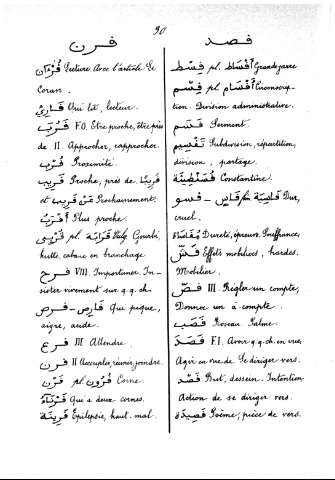 90
قرن
قرْآن Lecture. Avec l'article. Le
Coran.
قَارِئ Qui lit, lecteur.
قَرُبَ F.O. Etre proche, être près
de II. Approcher, rapprocher.
قُرْب Proximité.
قَرِيب Proche, près de. قَرِيبًا
et عَنْ قَرِيب Prochainement.
أَقْرَب Plus proche.
pl. قَرَابَة Vulg. Gourbi,
hutte, cabane en branchage
قرح VIII. Importuner. In-
sister vivement sur q.q.ch.
قرص - قَارِص Qui pique,
aigre, acide.
قرع III Attendre.
قرن II Accoupler, réunir, joindre.
قَرْن pl. قُرُون Corne.
قَرْنَاء Qui a deux cornes.
قَرِينَة Epilepsie, haut-mal.
قصد
قِسْط pl. أَقْسَاط Grande jarre
قِسْم pl. أَقْسَام Circonscrip-
tion. Division administrative.
قَسَم Serment.
تَقْسِيم Subdivision, répartition,
division, partage.
قُسَنْطِينَة Constantine.
قسو - قَاسٍ f. قَاسِيَة Dur,
cruel.
مُقَاسَاة Dureté, épreuve. Souffrance.
قَشّ Effets mobiliers, hardes.
Mobilier.
قصّ III. Régler un compte,
Donner un à compte.
قَصَب Roseau. Palme.
قَصَدَ F.I. Avoir q.q.ch. en vue,
Agir en vue de. Se diriger vers.
قَصْد But, dessein. Intention
Action de se diriger vers.
قَصِيدَة Poème, pièce de vers.